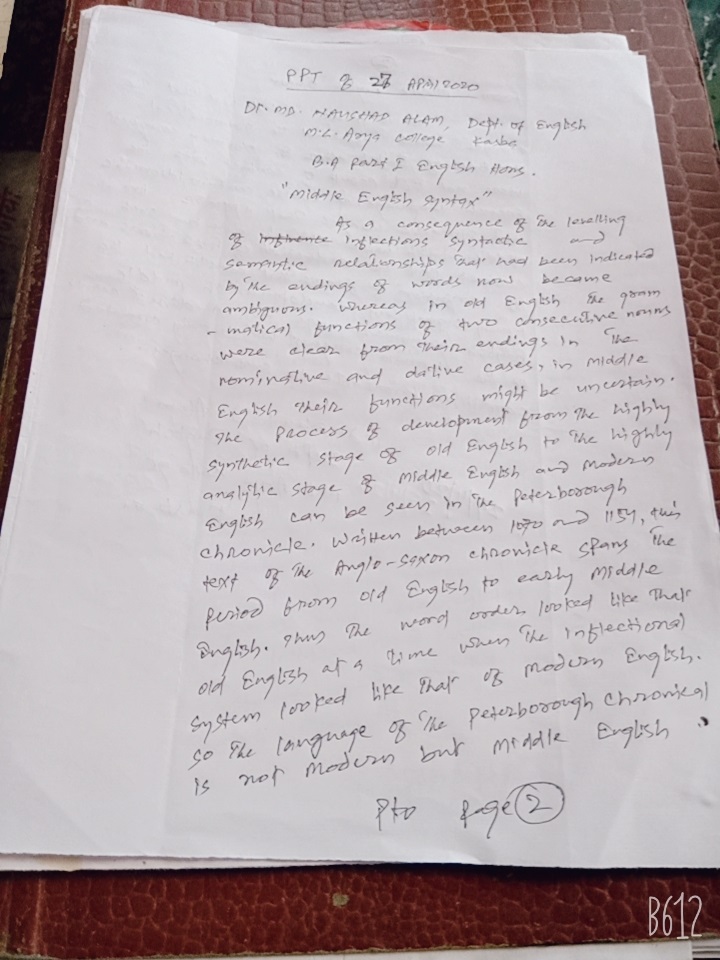 PPT of 27 April 2020
Dr. MD. NAUSHAD ALAM, Dept. of English
M.L. Arya College Kasba
B.A Part I English Hons.
"Middle English Syntax"
As a consequence of the levelling
of influence inflections syntactic and
semantic relationships that had been indicated
by the endings of words now became
ambiguous. Whereas in old English the gram
-matical functions of two consecutive nouns
were clear from their endings in the
nominative and dative cases, in Middle
English their functions might be uncertain.
The process of development from the highly
synthetic stage of old English to the highly
analytic stage of Middle English and Modern
English can be seen in the Peterborough
chronicle. Written between 1070 and 1154, this
text of the Anglo-Saxon chronicle spans the
period from old English to early Middle
English. Thus the word order looked like that
old English at a time when the inflectional
system looked like that of modern English.
So the language of the Peterborough chronical
is not modern but Middle English.
Pto Page 2
B612